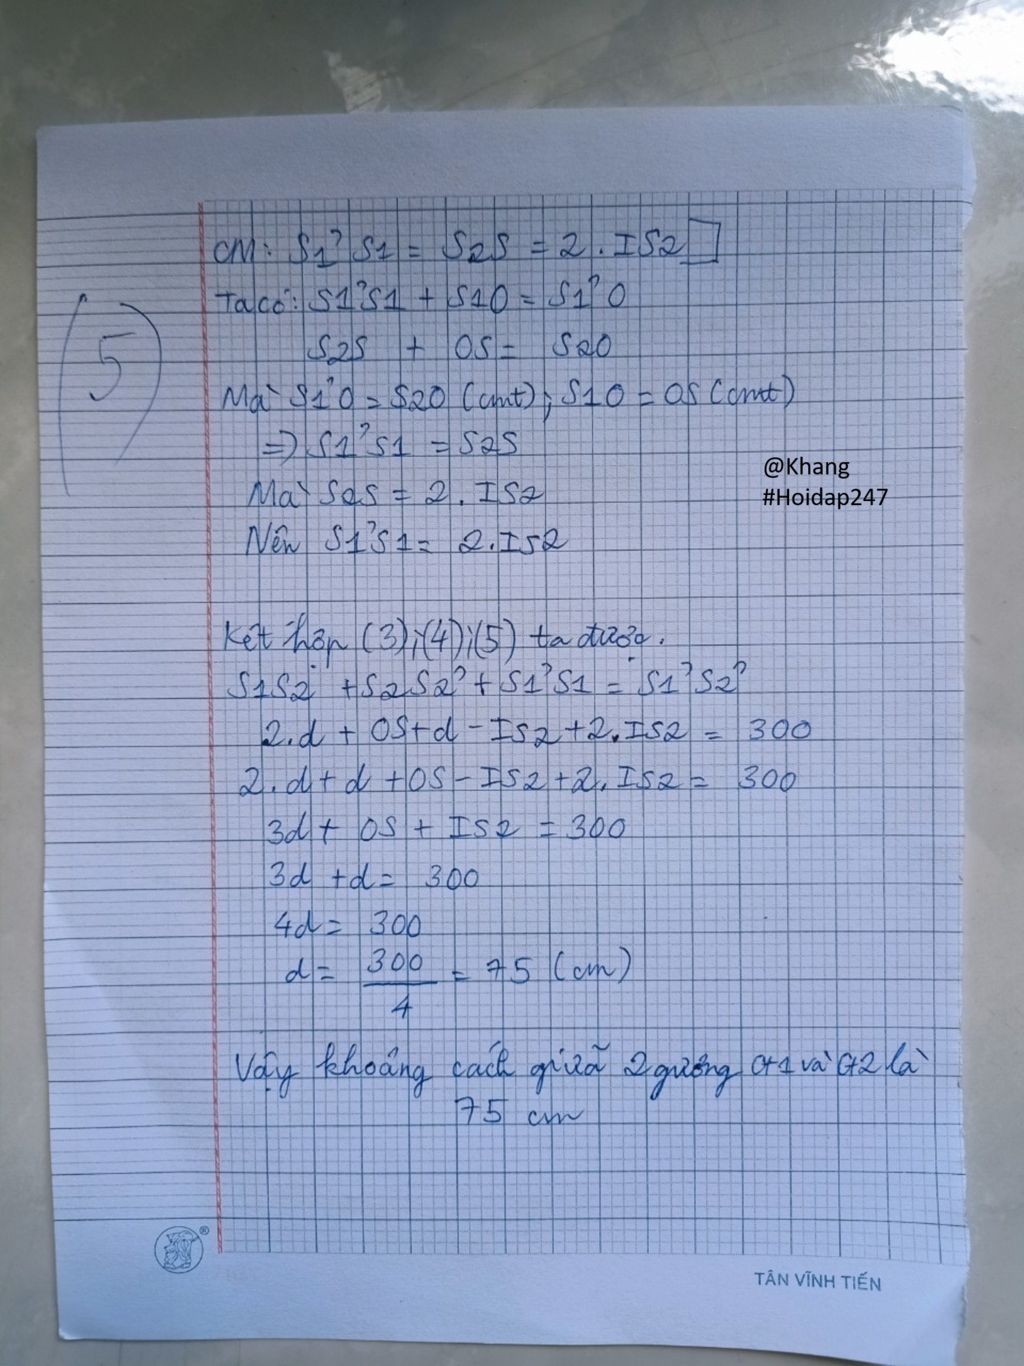 CM: S1' S1 = S2S = 2 . IS2
(5)
Ta có: S1'S1 + S1O = S1'O
S2S + OS = S2O
Mà S1'O = S2O (cmt); S1O = OS (cmt)
=> S1'S1 = S2S
Mà S2S = 2 . IS2
Nên S1'S1 = 2.IS2
@Khang
#Hoidap247
Kết hợp (3);(4);(5) ta được.
S1S2 + S2S2' + S1'S1 = S1'S2'
2.d + OS+d - IS2 + 2.IS2 = 300
2.d + d + OS - IS2 + 2.IS2 = 300
3d + OS + IS2 = 300
3d + d = 300
4d = 300
d = 300/4 = 75 (cm)
Vậy khoảng cách giữa 2 gương G1 và G2 là
75 cm
TÂN VĨNH TIẾN
®